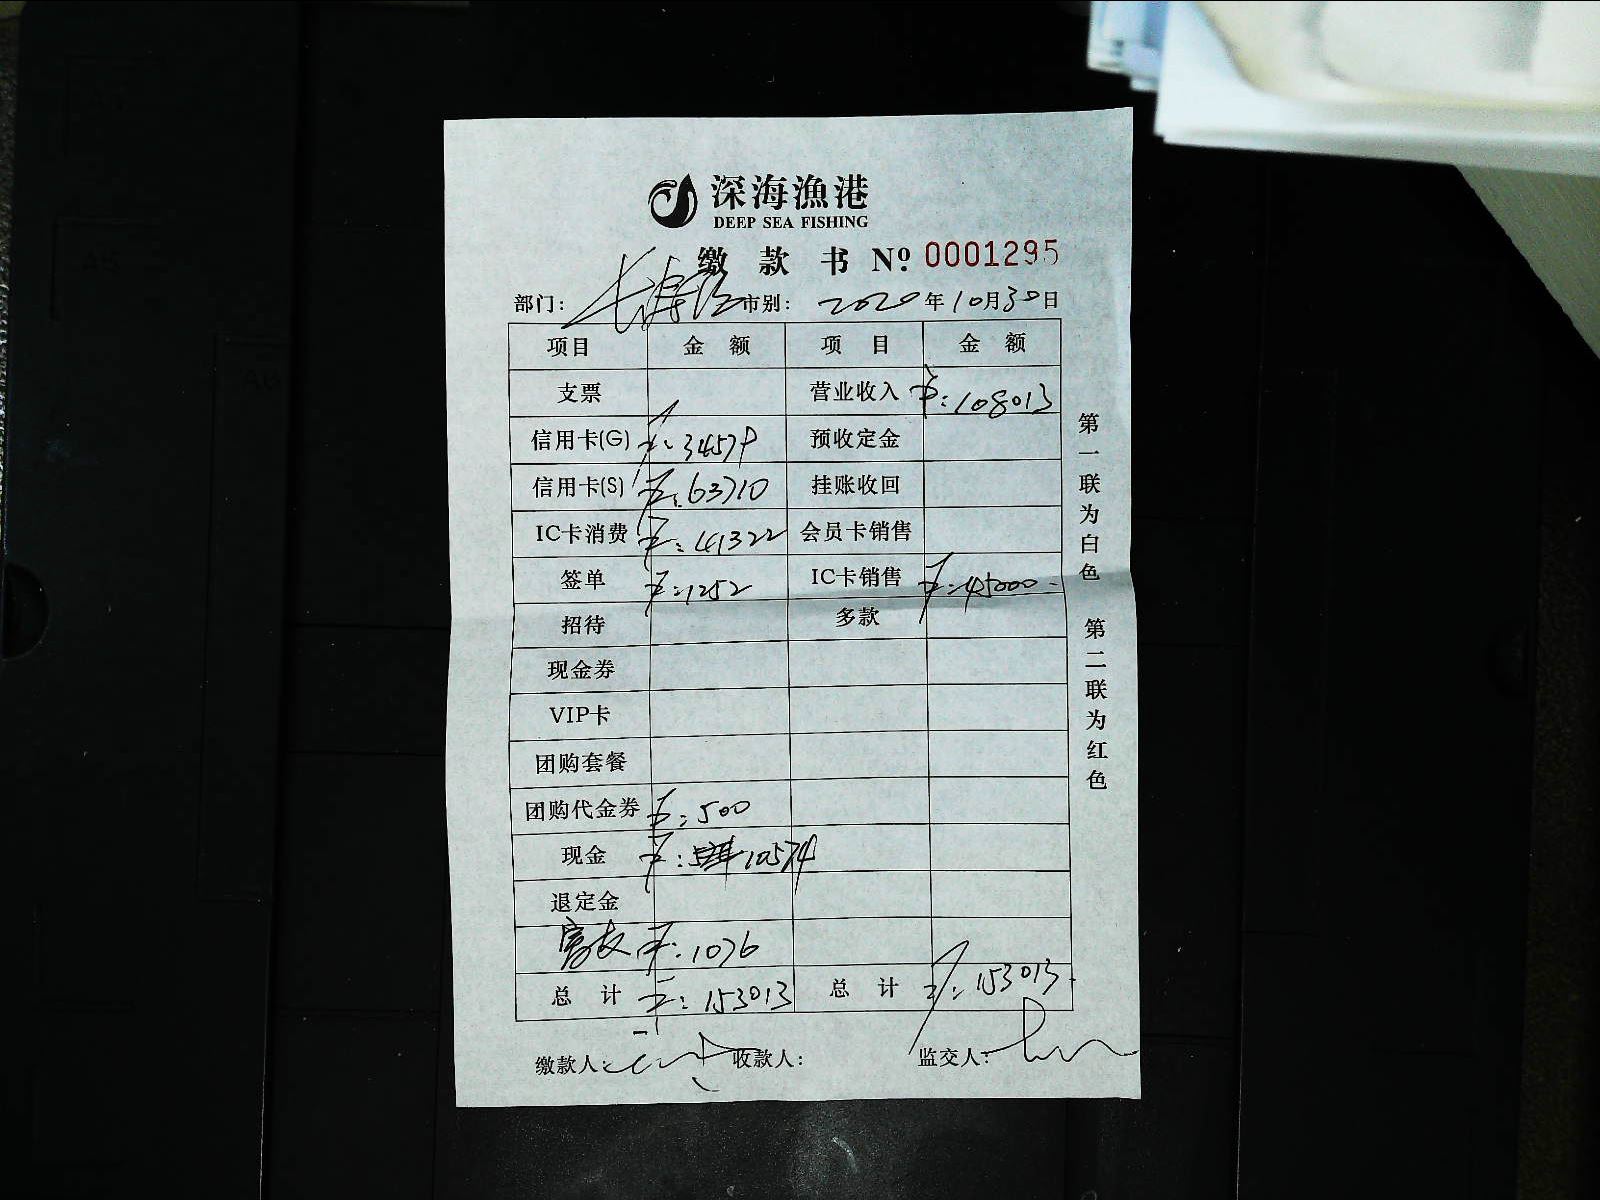 深海漁港
DEEP SEA FISHING
缴款书 Nº 0001295
部门: 市别: 2020年10月30日
项目 金额 项目 金额
支票 营业收入 ¥:108013
信用卡(G) ¥:34579 预收定金
信用卡(S) ¥:63710 挂账收回
IC卡消费 ¥:41322 会员卡销售
签单 ¥:1252 IC卡销售 ¥:45000
招待 多款
现金券
VIP卡
团购套餐
团购代金券 ¥:500
现金 ¥:10574
退定金
¥:1076
总计 ¥:153013 总计 ¥:153013
缴款人: 收款人: 监交人:
第一联为白色 第二联为红色